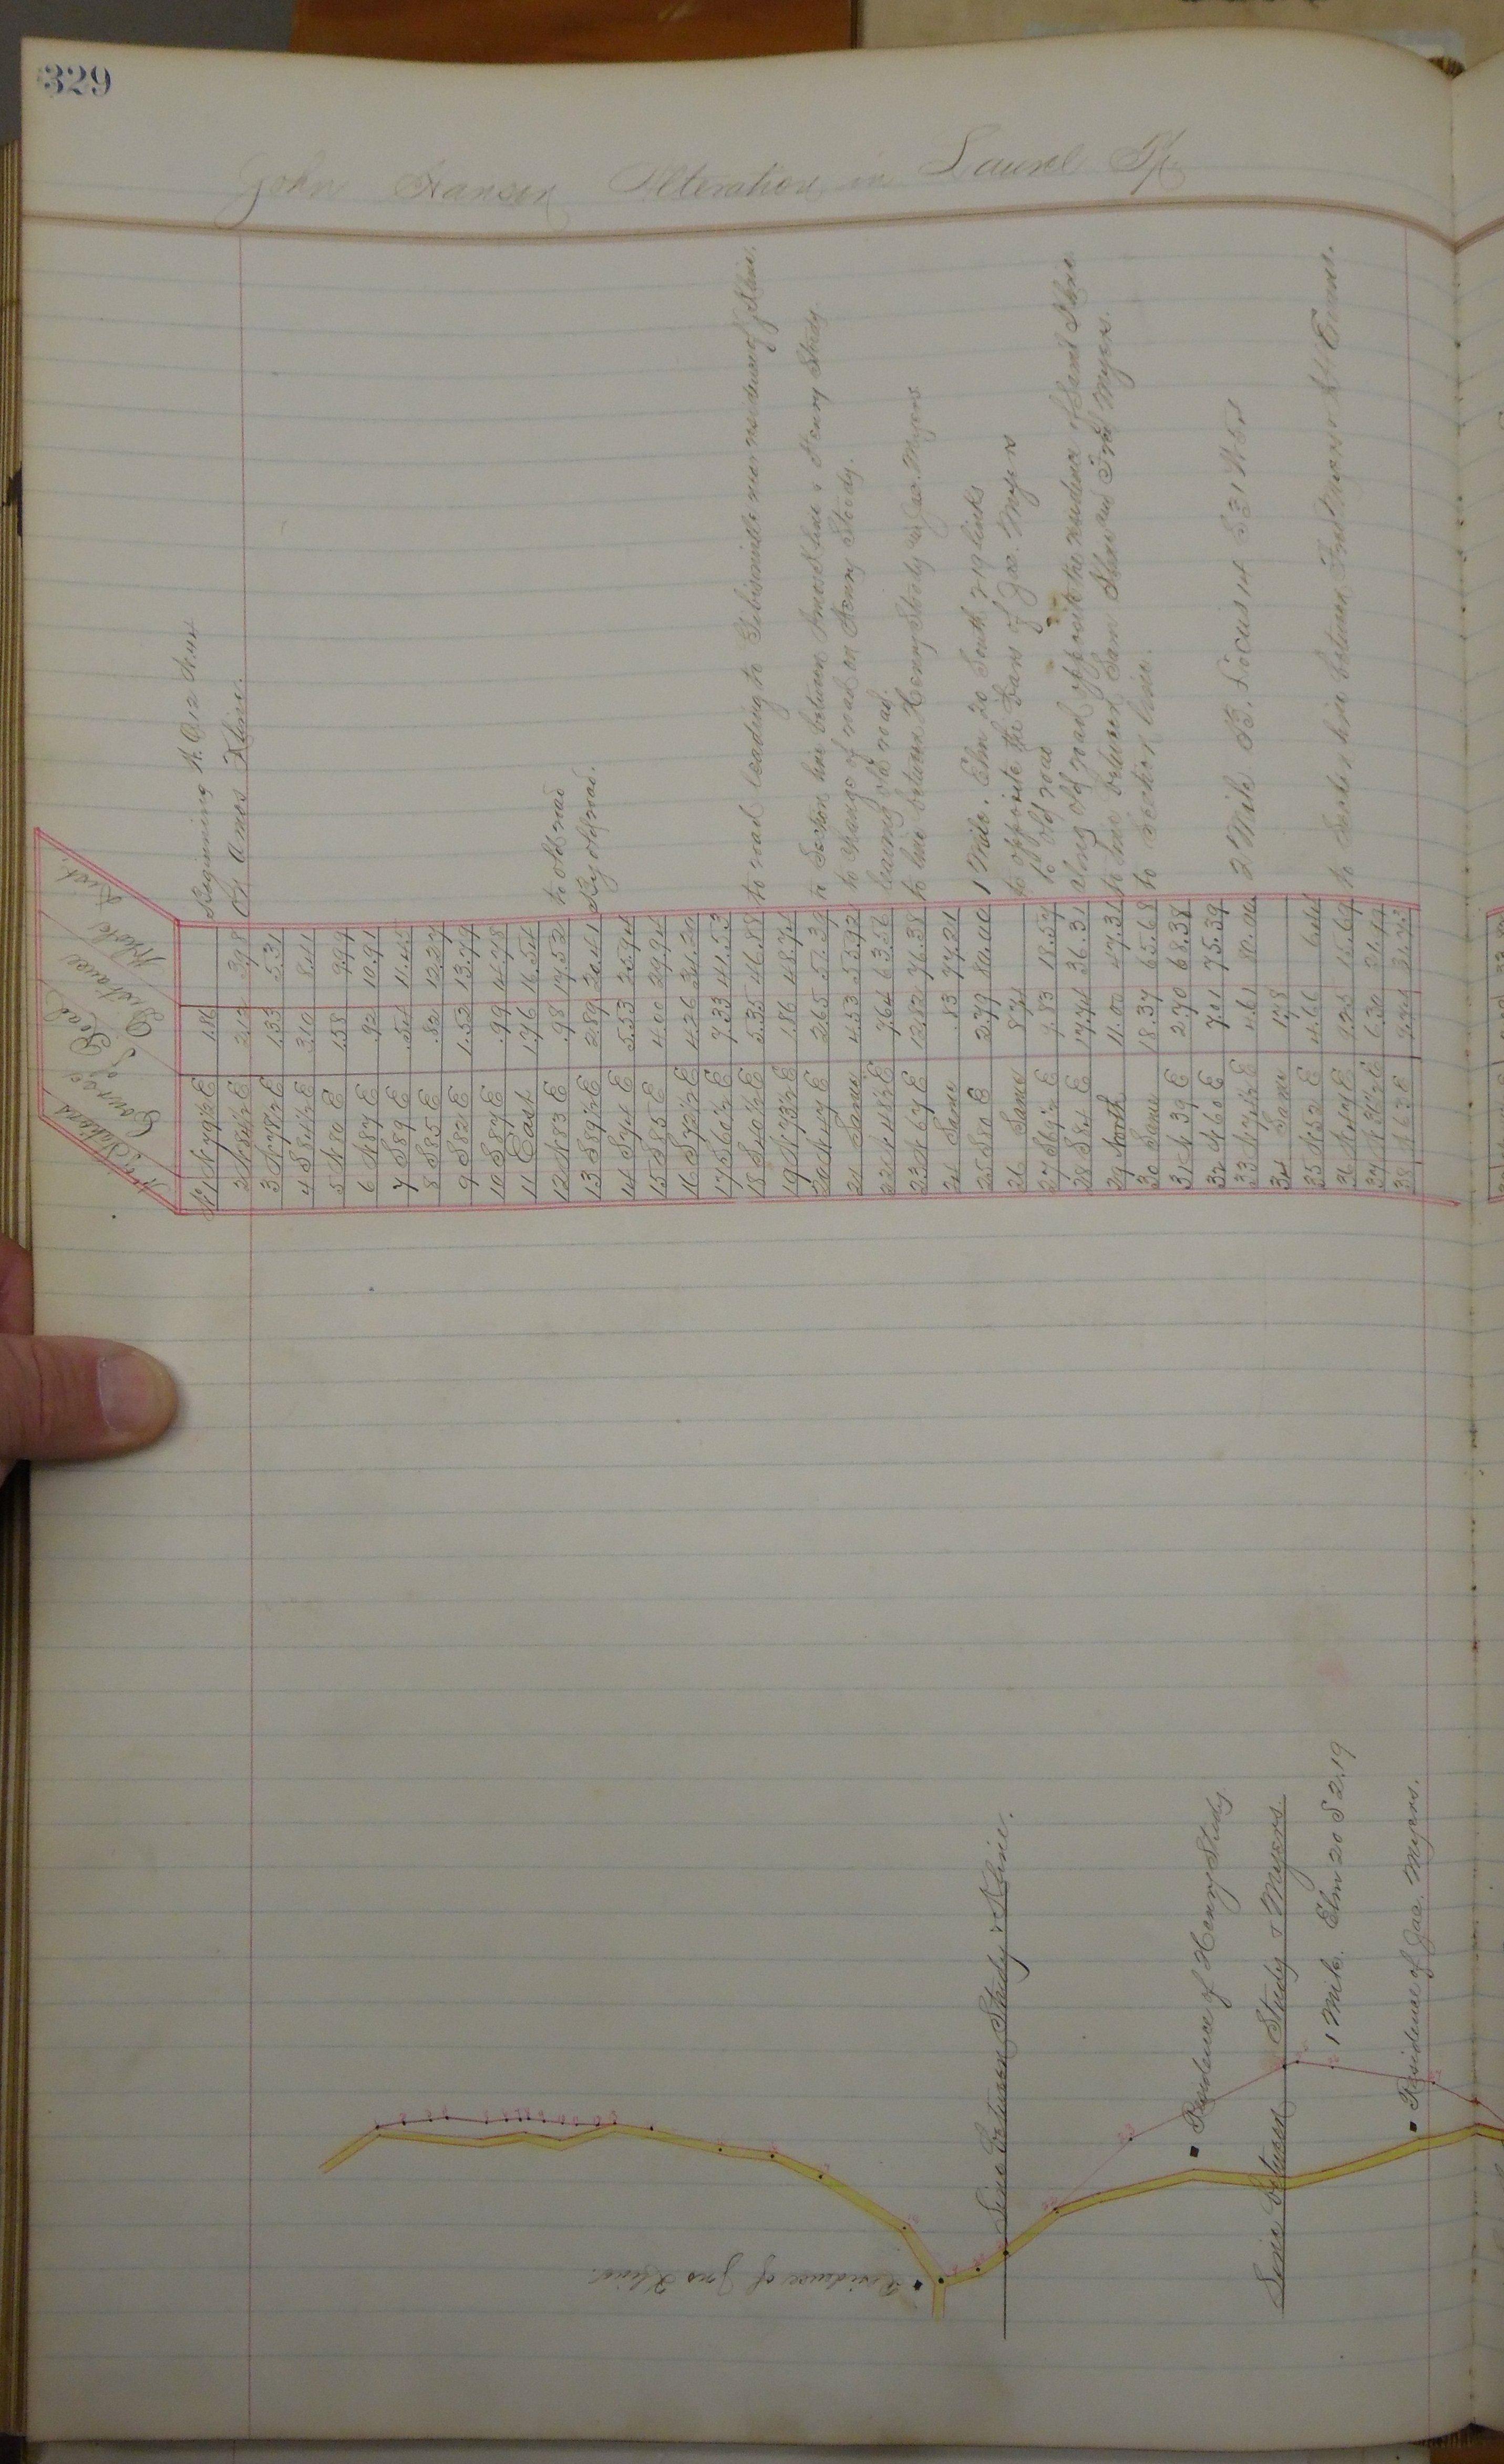 329
John Hansen Alteration in Laurel Tp
No of Stations
Course of Road
Distance
Whole Dist.
No 1 N 79½ E 1.86 Beginning
2 N 84½ E 2.12 3.98 On Amos Kline.
3 N 78½ E 1.33 5.31
4 S 84½ E 3.10 8.41
5 N 80 E 1.58 9.99
6 N 87 E .92 10.91
7 S 89 E .54 11.45
8 S 85 E .82 12.27
9 S 82 E 1.52 13.79
10 S 87 E .99 14.78
11 East 1.76 16.54
12 N 83 E .98 17.52 to old road
13 S 89½ E 2.89 20.41 By old road.
14 S 74 E 5.53 25.94
15 S 85 E 4.00 29.94
16 S 72½ E 4.26 34.20
17 S 60½ E 7.33 41.53
18 S 40½ E 5.35 46.88 to road leading to Gibisonville near residence of J Kline.
19 N 73½ E 1.86 48.74
20 N 47 E 2.65 51.39 to Section line between Amos Kline & Henry Study.
21 Same 4.53 55.92 to change of road on Henry Study.
22 N 48½ E 7.64 63.56 leaving old road.
23 N 67 E 12.82 76.38 to line between Henry Study & Jac. Myers
24 Same .83 77.21
25 S 80 E 2.79 80.00 1 Mile. Elm 20 South 2.19 links
26 Same 8.74 to opposite the Barn of Jac. Myers
27 S 69½ E 9.83 18.57 to old road
28 S 84 E 17.74 36.31 along old road opposite the residence of Saml Kline
29 North 11.00 47.31 to line between Sam Kline and Fred Myers.
30 Same 18.37 65.68 to Section line.
31 N 39 E 2.70 68.38
32 N 60 E 7.01 75.39
33 N 74½ E 4.61 80.00 2 Mile B. Locus 14 S 31 W
34 Same 1.78
35 N 52 E 4.66 6.44
36 N 47 E 9.25 15.69 to Section line between Fred Myers &
37 N 31½ E 6.30 21.99
38 N 63 E
Residence of Jno Kline.
Line between Study & Kline.
Residence of Henry Study.
Line between Study & Myers.
1 Mile. Elm 20 S 2.19
Residence of Jac. Myers.